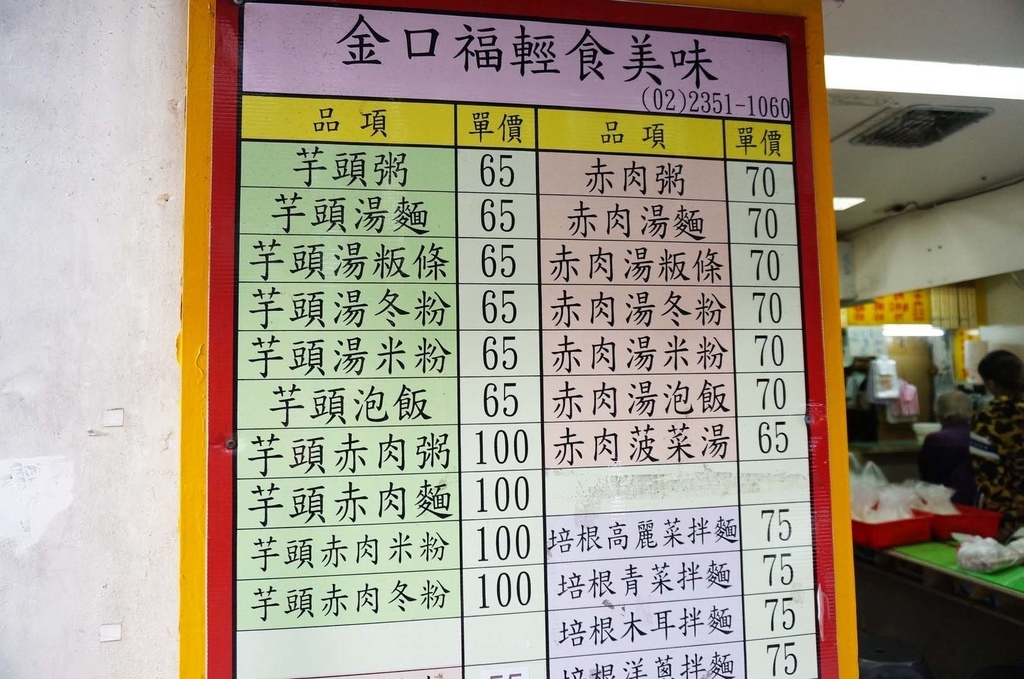 金口福輕食美味
(02)2351-1060
品項 單價 品項 單價
芋頭粥 65 赤肉粥 70
芋頭湯麵 65 赤肉湯麵 70
芋頭湯粄條 65 赤肉湯粄條 70
芋頭湯冬粉 65 赤肉湯冬粉 70
芋頭湯米粉 65 赤肉湯米粉 70
芋頭泡飯 65 赤肉湯泡飯 70
芋頭赤肉粥 100 赤肉菠菜湯 65
芋頭赤肉麵 100
芋頭赤肉米粉 100 培根高麗菜拌麵 75
芋頭赤肉冬粉 100 培根青菜拌麵 75
培根木耳拌麵 75
培根洋蔥拌麵 75